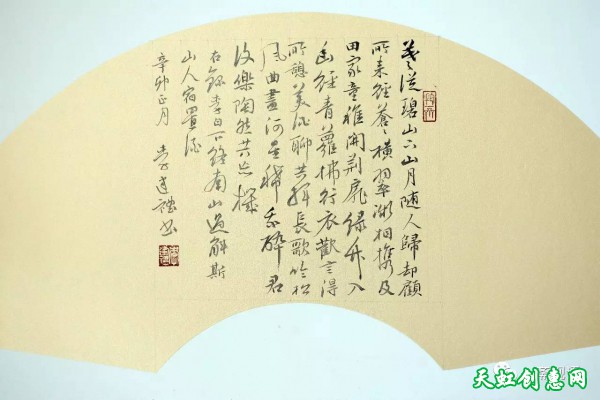 暮從碧山下山月隨人歸却顧
所来徑蒼々橫翠微相攜及
田家童稚開荊扉綠竹入
幽徑青蘿拂行衣歡言得
所憩美酒聊共揮長歌吟松
風曲盡河星稀我醉君
復樂陶然共忘機
右錄李白下終南山過斛斯
山人宿置酒
辛卯正月 李道 书
天虹创意网